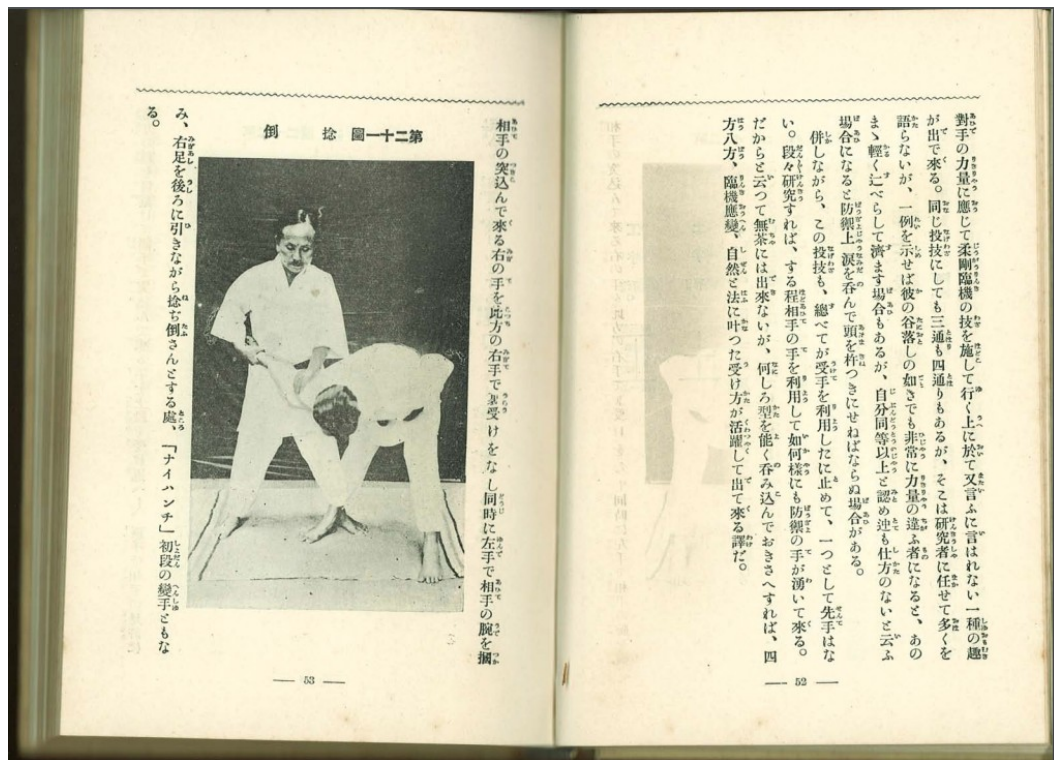 對手の力量に應じて柔剛臨機の技を施して行く上に於て又言ふに言はれない一種の趣
が出で來る。同じ投技にしても三通も四通りもあるが、そこは研究者に任せて多くを
語らないが、一例を示せば彼の谷落しの如きでも非常に力量の違ふ者になると、あの
まゝ輕く辷べらして濟ます場合もあるが、自分同等以上と認め迚も仕方のないと云ふ
場合になると防禦上涙を呑んで頭を杵つきにせねばならぬ場合がある。
併しながら、この投技も、總べてが受手を利用したに止めて、一つとして先手はな
い。段々研究すれば、する程相手の手を利用して如何樣にも防禦の手が湧いて來る。
だからと云つて無茶には出來ないが、何しろ型を能く呑み込んでおきさへすれば、四
方八方、臨機應變、自然と法に叶つた受け方が活躍して出て來る譯だ。
— 52 —
相手の突込んで來る右の手を此方の右手で受けをなし同時に左手で相手の腕を摑
第二十一圖 捻倒
み、右足を後ろに引きながら捻ぢ倒さんとする處、「ナイハンチ」初段の變手ともな
る。
— 53 —